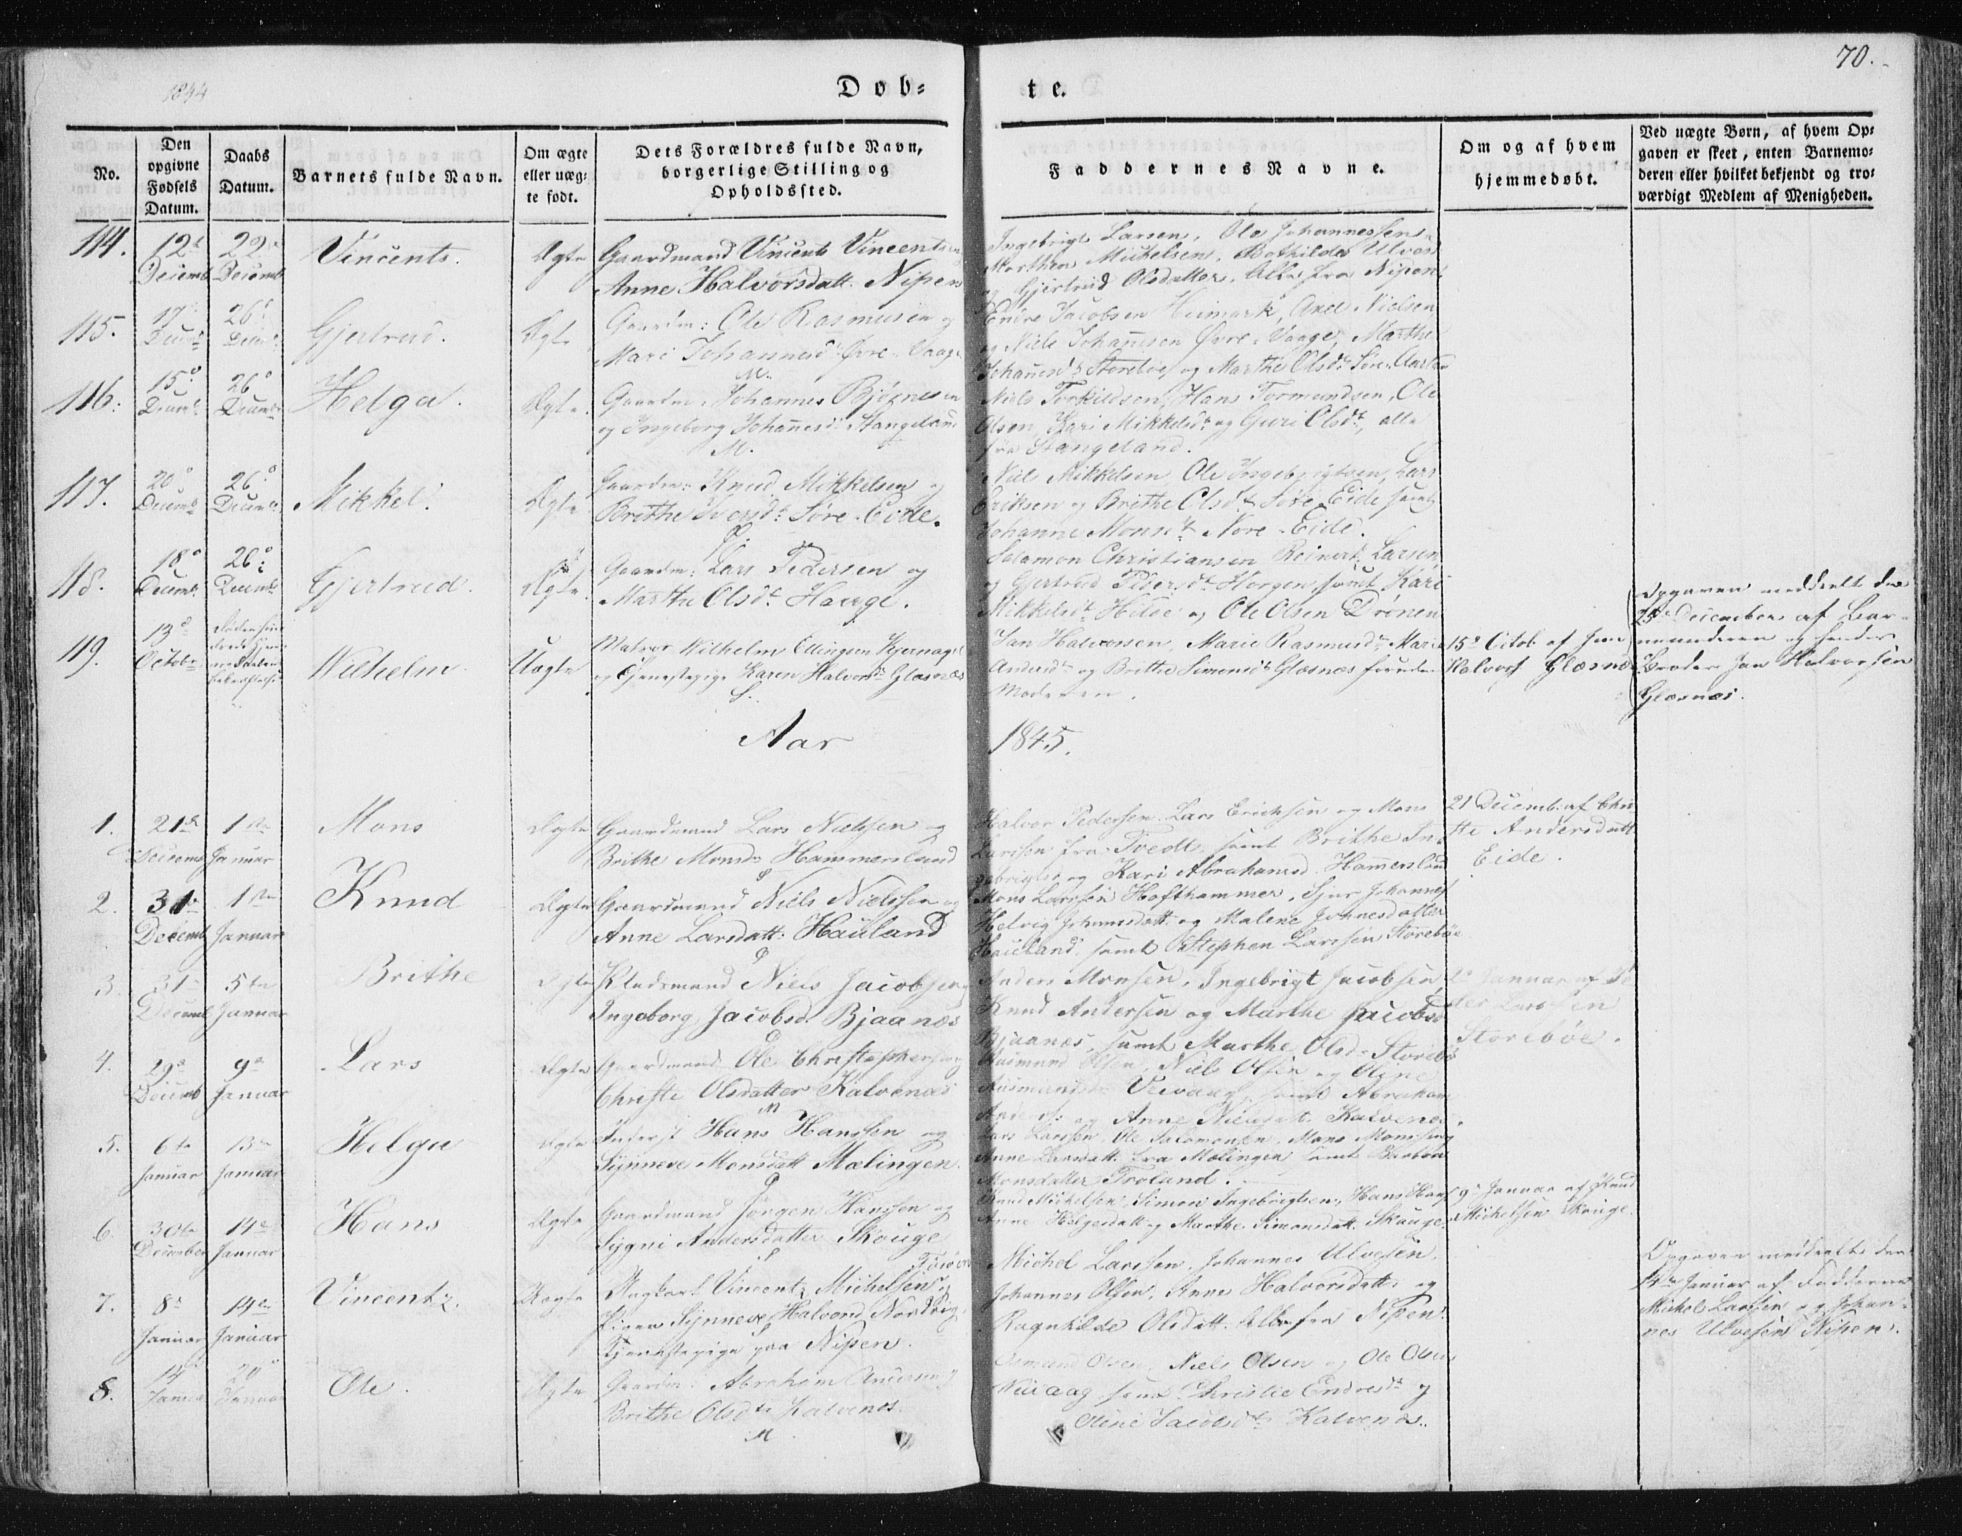 70.
1844
Døb=
te.
No.
Den opgivne Fødsels Datum.
Daabs Datum.
Barnets fulde Navn.
Om ægte eller uæg-te født.
Dets Forældres fulde Navn, borgerlige Stilling og Opholdssted.
Faddernes Navne.
Om og af hvem hjemmedøbt.
Ved uægte Børn, af hvem Op-gaven er skeet, enten Barnemo-deren eller hvilket bekjendt og tro-værdigt Medlem af Menigheden.
114. 12 Decemb 22 Decemb Vincents. Ægte Gaardmand Vincents Vincentsen
Anne Halvorsdatt. Nipen
Ingebrigt Larsen, Ole Johannessen
Michelsen, Bothilde
Gjertrud Olsdatter, Alle fra Nipen
115. 17 Decemb 26 Decemb Gjertrud. Ægte Gaardm: Ole Rasmusen og
Mari Johannesd Øvre-Vaage
M.
Endre Jacobsen Heimark, Nielsen
og Niels Johannesen Øvre-Vaage, Marthe
Johannesd Storebøe og Marthe Olsdt Søre
116. 15 Decemb 26 Decemb Helga. Ægte Gaardm: Johannes Bjørnesen
og Ingeborg Johannesd Stangeland
M.
Niels Torkildsen, Hans Tormundsen, Ole
Olsen, Kari Mikkelsdt og Guri Olsdt, alle
fra Stangeland.
117. 20 Decemb 26 Decemb Mikkel. Ægte Gaardm: Knud Mikkelsen og
Brithe Iversdt Søre-Eide.
Niels Mikkelsen, Ole Ingebrigtsen, Lars
Eriksen og Brithe Olsdt Søre Eide samt
Johanne Monsdt Nore-Eide.
118. 18 Decemb 26 Decemb Gjertrud. Ægte Gaardm: Lars Pedersen og
Marthe Olsdt Hauge.
Salamon Christiansen Reinert Larsen
og Gjertrud Pedersdt Horgen, samt Kari
Mikkelsdt Hilde og Ole Olsen Drønen
119. 13 Octob Wilhelm Uægte Matros Wilhelm Ellingsen
og Tjenestepige Karen Halvorsdt Glæsnæs
Jan Halvorsen, Marie Rasmusdt, Marie
Andersdt og Brithe Simonsdt Glæsnæs foruden
Moderen.
15 Octob af Jan
Halvors Glæsnæs
Opgaven meddeelt den
25 December af Bar-
nemoderen og hendes
Broder Jan Halvorsen
Glæsnæs.
Aar
1845.
1. 21 Decemb 1ste Januar Mons Ægte Gaardmand Lars Nielsen og
Brithe Monsd Hammersland
Halvor Pedersen, Lars Erichsen og Mons
Larssen fra Tvedt, samt Brithe In-
gebrigtsd og Kari Abrahamsd Hammersland
21 Decemb. af Chri
ste Andersdatt
Eide.
2. 31 Decemb 1ste Januar Knud Ægte Gaardmand Niels Nielssen og
Anne Larsdatt: Hauland
Mons Larssen Hofthammer, Sjur Johannes
Helvig Johannesdatt og Malene Johannesdatter
Hauland, samt Stephen Larssen Storebøe
3. 31 Decemb 5te Januar Brithe Ægte Pladsmand Niels Jacobsen
Ingeborg Jacobsd Bjaanæs
Anders Monsen, Ingebrigt Jacobsen,
Knud Andersen og Marthe Jacobsd
Bjaanæs, samt Marthe Olsd Storebø
Januar af
Larssen
Storebøe.
4. 29 Decemb 9 Januar Lars Ægte Gaardmand Ole Christophersen
Christi Olsdatter Kalvenæs
M
Rasmund Olsen, Niels Olsen og Oline
samt Abraham
og Anne Nielsdt Kalvenes.
5. 6te Januar 13 Januar Helga Ægte Inderst Hans Hanssen og
Synneve Monsdatt Mælingen.
Lars Larssen, Ole Salomonsen, Mons Monssen
Anne Larsdatt. fra Mælingen samt Barbro
Monsdatter Troland.
6. 30te December 14 Januar Hans Ægte Gaardmand Jørgen Hanssen og
Sygni Andersdatter Skouge
Knud Michelsen, Simon Ingebrigtsen, Hans Hans
Anne Helgesdatt og Marthe Simonsdatt. Skouge.
9 Januar af Knud
Michelsen Skouge.
7. 8 Januar 14 Januar Vincentz. Uægte Vincentz Michelsen
Pigen Synneve Halvorsd Nordvig
Tjenestepige paa Nipen.
Michel Larssen, Johannes Ulvesen,
Johannes Olsen, Anne Halvorsdatt: og
Ragnhilde Olsdatt. Alle fra Nipen.
Opgaven meddeelt den
14 Januar af Fadderne
Michel Larssen og Johan-
nes Ulvesen Nipen.
8. 14 Januar 20 Januar Ole. Ægte Gaardm: Abraham Andersen og
Brithe Olsdt Kalvenes.
M
Osmund Olsen, Niels Olsen og Ole Olsen
samt Christie Endresdt og
Oline Jacobsdt Kalvenæs.